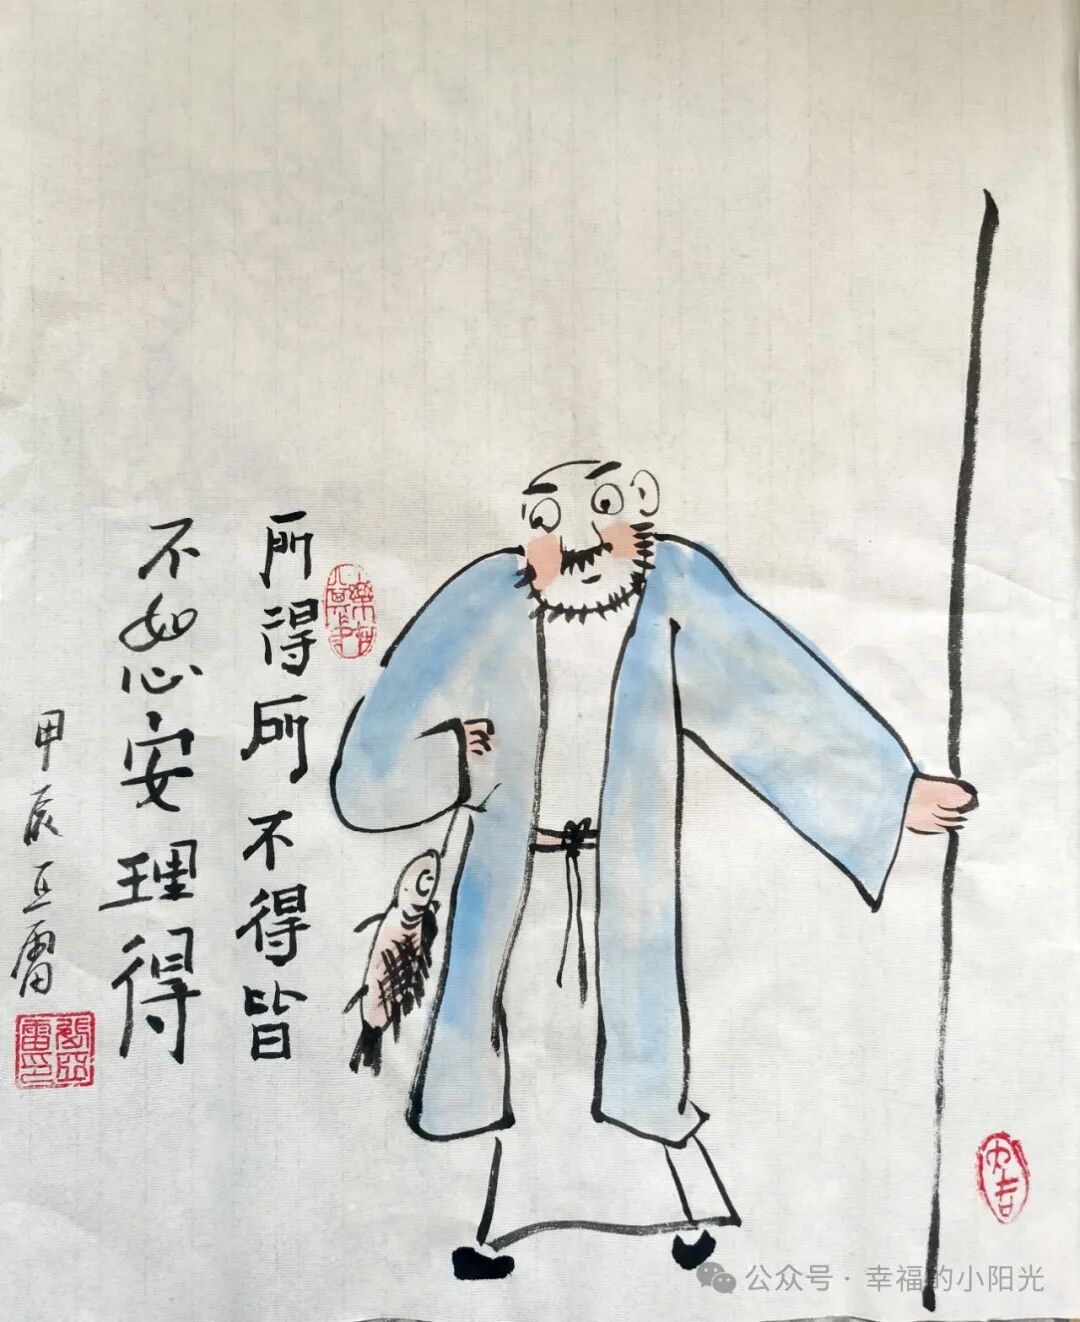 所得所不得皆
不如心安理得
甲辰亚雷
公众号·幸福的小阳光